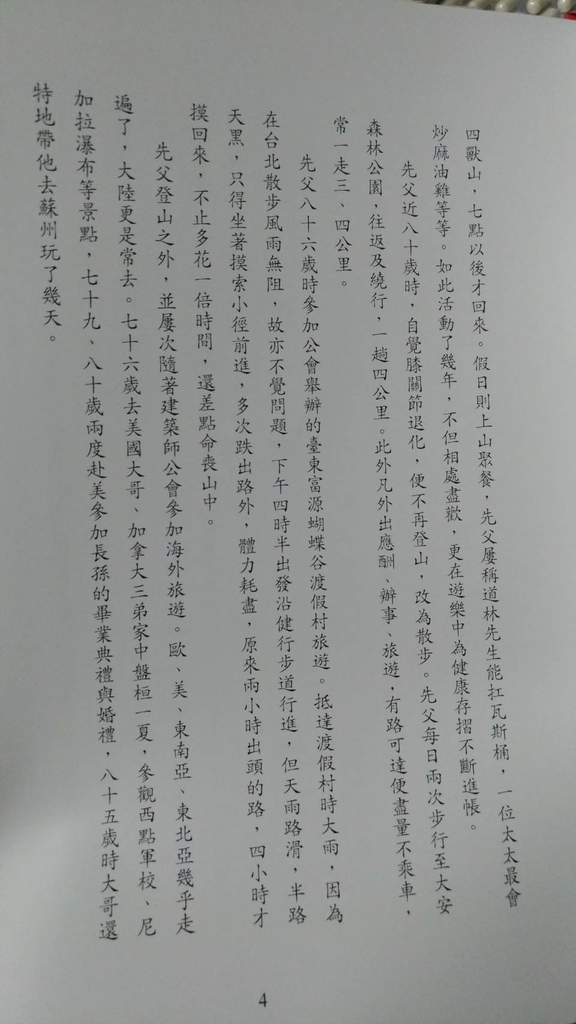 四獸山，七點以後才回來。假日則上山聚餐，先父屢稱道林先生能扛瓦斯桶，一位太太最會
炒麻油雞等等。如此活動了幾年，不但相處盡歡，更在遊樂中為健康存摺不斷進帳。
先父近八十歲時，自覺膝關節退化，便不再登山，改為散步。先父每日兩次步行至大安
森林公園，往返及繞行，一趟四公里。此外凡外出應酬、辦事、旅遊，有路可達便盡量不乘車，
常一走三、四公里。
先父八十六歲時參加公會舉辦的臺東富源蝴蝶谷渡假村旅遊。抵達渡假村時大雨，因為
在台北散步風雨無阻，故亦不覺問題，下午四時半出發沿健行步道行進，但天雨路滑，半路
天黑，只得坐著摸索小徑前進，多次跌出路外，體力耗盡，原來兩小時出頭的路，四小時才
摸回來，不止多花一倍時間，還差點命喪山中。
先父登山之外，並屢次隨著建築師公會參加海外旅遊。歐、美、東南亞、東北亞幾乎走
遍了，大陸更是常去。七十六歲去美國大哥、加拿大三弟家中盤桓一夏，參觀西點軍校、尼
加拉瀑布等景點，七十九、八十歲兩度赴美參加長孫的畢業典禮與婚禮，八十五歲時大哥還
特地帶他去蘇州玩了幾天。
4